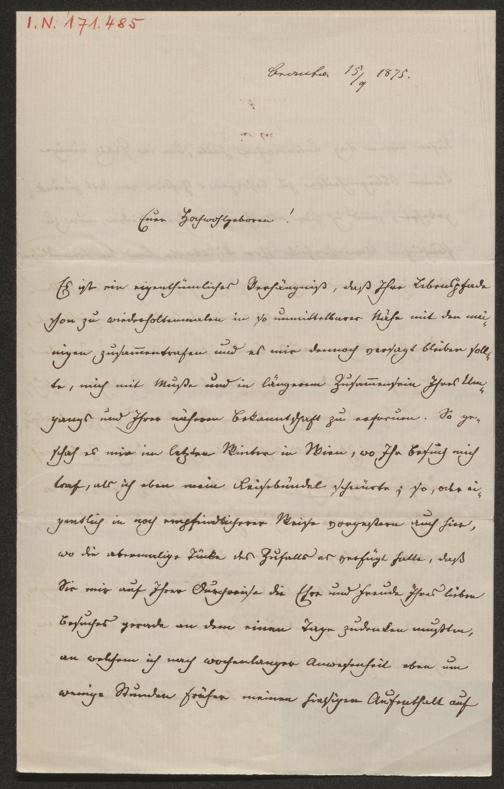 I.N. 171.485
15/9 1875.
Euer Hochwohlgeboren!
Es ist ein eigenthümliches Verhängniß, daß Ihre Lebenspfade
schon zu wiederholtenmalen in so unmittelbarer Nähe mit den mei-
nigen zusammentrafen und es mir dennoch versagt bleiben soll-
te, mich mit Muße und in längerem Zusammensein Ihres Um-
gangs und Ihrer näheren Bekanntschaft zu erfreuen. So ge-
schah es mir im letzten Winter in Wien, wo Ihr Besuch mich
traf, als ich eben mein Reisebündel schnürte; so, oder ei-
gentlich in noch empfindlicherer Weise vorgestern auch hier,
wo die abermalige Tücke des Zufalls es gefügt hatte, daß
Sie mir auf Ihrer Durchreise die Ehre und Freude Ihres lieben
Besuches gerade an dem einen Tage zudenken mußten,
an welchem ich nach wochenlanger Anwesenheit eben um
wenige Stunden früher meinen hiesigen Aufenthalt auf